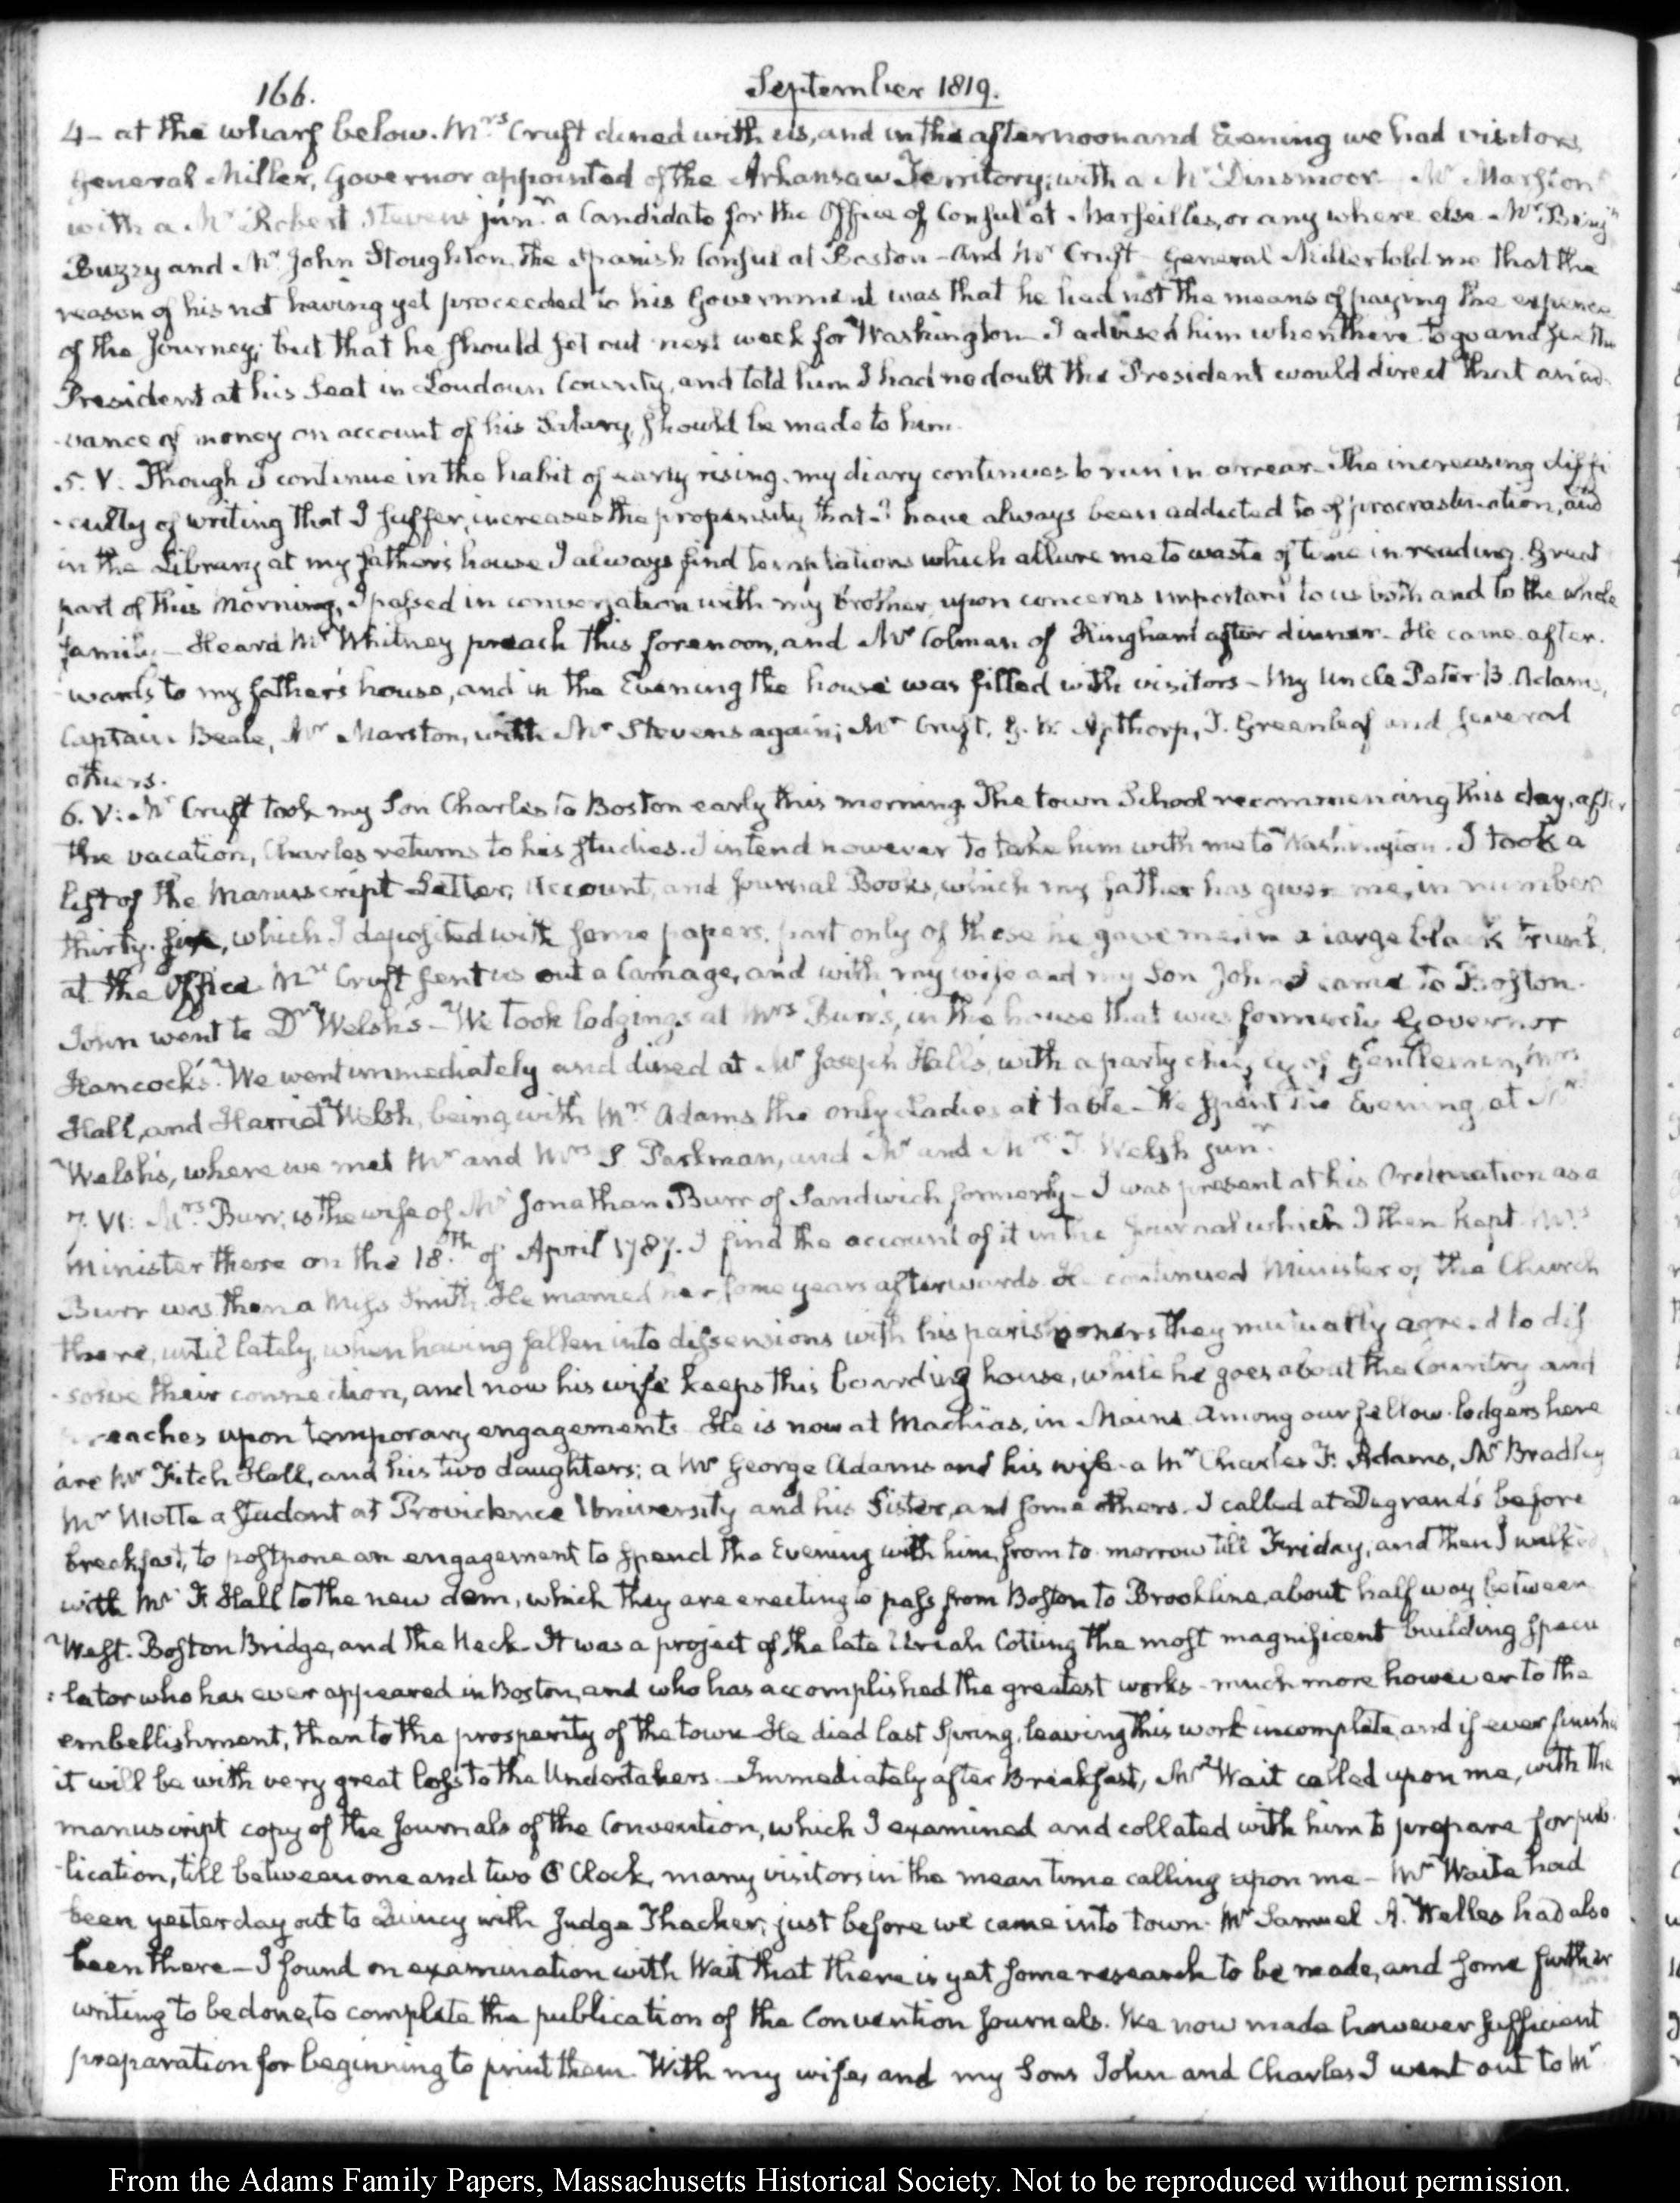 166. September 1819.
4– at the wharf below. Mrs Cruft dined with us, and in the afternoon and Evening we had visitors
General Miller, Governor appointed of the Arkansaw Territory; with a Mr Dinsmoor. Mr Marston
with a Mr Robert Stevens junr a Candidate for the Office of Consul at Marseilles, or any where else Mr Benjn
Buzzy and Mr John Stoughton, the Spanish Consul at Boston – and Mr Cruft – General Miller told me that the
reason of his not having yet proceeded to his Government was that he had not the means of paying the expence
of the Journey; but that he should set out next week for Washington. I advised him when there to go and see the
President at his Seat in Loudoun County, and told him I had no doubt the President would direct that an ad-
-vance of money on account of his Salary, should be made to him.
5. V. Though I continue in the habit of early rising, my diary continues to run in arrear. The increasing diffi
-culty of writing that I suffer, increases the propensity that I have always been addicted to of procrastination, and
in the Library at my father's house I always find temptations which allure me to waste of time in reading. Great
part of this Morning, I passed in conversation with my brother, upon concerns important to us both and to the whole
family – Heard Mr Whitney preach this forenoon, and Mr Colman of Hingham after dinner – He came after-
wards to my father's house, and in the Evening the house was filled with visitors – My Uncle Peter B. Adams,
Captain Beale, Mr Marston, with Mr Stevens again; Mr Cruft, G. W. Apthorp, J. Greenleaf and several
others.
6. V: Mr Cruft took my Son Charles to Boston early this morning. The town School recommencing this day, after
the vacation, Charles returns to his studies. I intend however to take him with me to Washington. I took a
list of the Manuscript Letter, Account, and Journal Books, which my father has given me, in number
thirty-five, which I deposited with some papers, part only of those he gave me, in a large black trunk,
at the Office. Mr Cruft sent us out a Carriage, and with my wife and my Son John I came to Boston.
John went to Dr Welsh's – We took lodgings at Mrs Burr's, in the house that was formerly Governor
Hancock's. We went immediately and dined at Mr Joseph Hall's, with a party chiefly of Gentlemen, Mrs
Hall, and Harriet Welsh, being with Mrs Adams the only Ladies at table – We spent the Evening at Dr
Welsh's, where we met Mr and Mrs S. Parkman, and Mr and Mrs T. Welsh junr.
7. VI: Mrs Burr, is the wife of Mr Jonathan Burr of Sandwich formerly – I was present at his Ordination as a
Minister there on the 18th of April 1787. I find the account of it in the Journal which I then kept. Mrs
Burr was then a Miss Smith. He married her some years afterwards. He continued Minister of the Church
there, until lately, when having fallen into dissensions with his parishioners they mutually agreed to dis
-solve their connection, and now his wife keeps this boarding house, while he goes about the Country and
preaches upon temporary engagements. He is now at Machias, in Maine. Among our fellow-lodgers here
are Mr Fitch Hall, and his two daughters; a Mr George Adams and his wife – a Mr Charles F. Adams, Mr Bradley
Mr Motte a student at Providence University and his Sister, and some others. I called at Degrand's before
breakfast, to postpone an engagement to spend the Evening with him, from to-morrow till Friday, and then I walked
with Mr F. Hall to the new dam, which they are erecting to pass from Boston to Brookline, about half way between
West-Boston Bridge, and the Neck. It was a project of the late Uriah Cotting the most magnificent building specu
:lator who has ever appeared in Boston, and who has accomplished the greatest works – much more however to the
embellishment, than to the prosperity of the town – He died last Spring, leaving this work incomplete, and if ever finished
it will be with very great loss to the Undertakers – Immediately after Breakfast, Mr Wait called upon me, with the
manuscript copy of the Journals of the Convention, which I examined and collated with him to prepare for pub-
-lication, till between one and two O'Clock, many visitors in the mean time calling upon me – Mr Waite had
been yesterday out to Quincy with Judge Thacher, just before we came into town. Mr Samuel A. Welles had also
been there – I found on examination with Wait that there is yet some research to be made, and some further
writing to be done, to complete the publication of the Convention Journals. We now made however sufficient
preparation for beginning to print them. With my wife, and my Sons John and Charles I went out to Mr
From the Adams Family Papers, Massachusetts Historical Society. Not to be reproduced without permission.